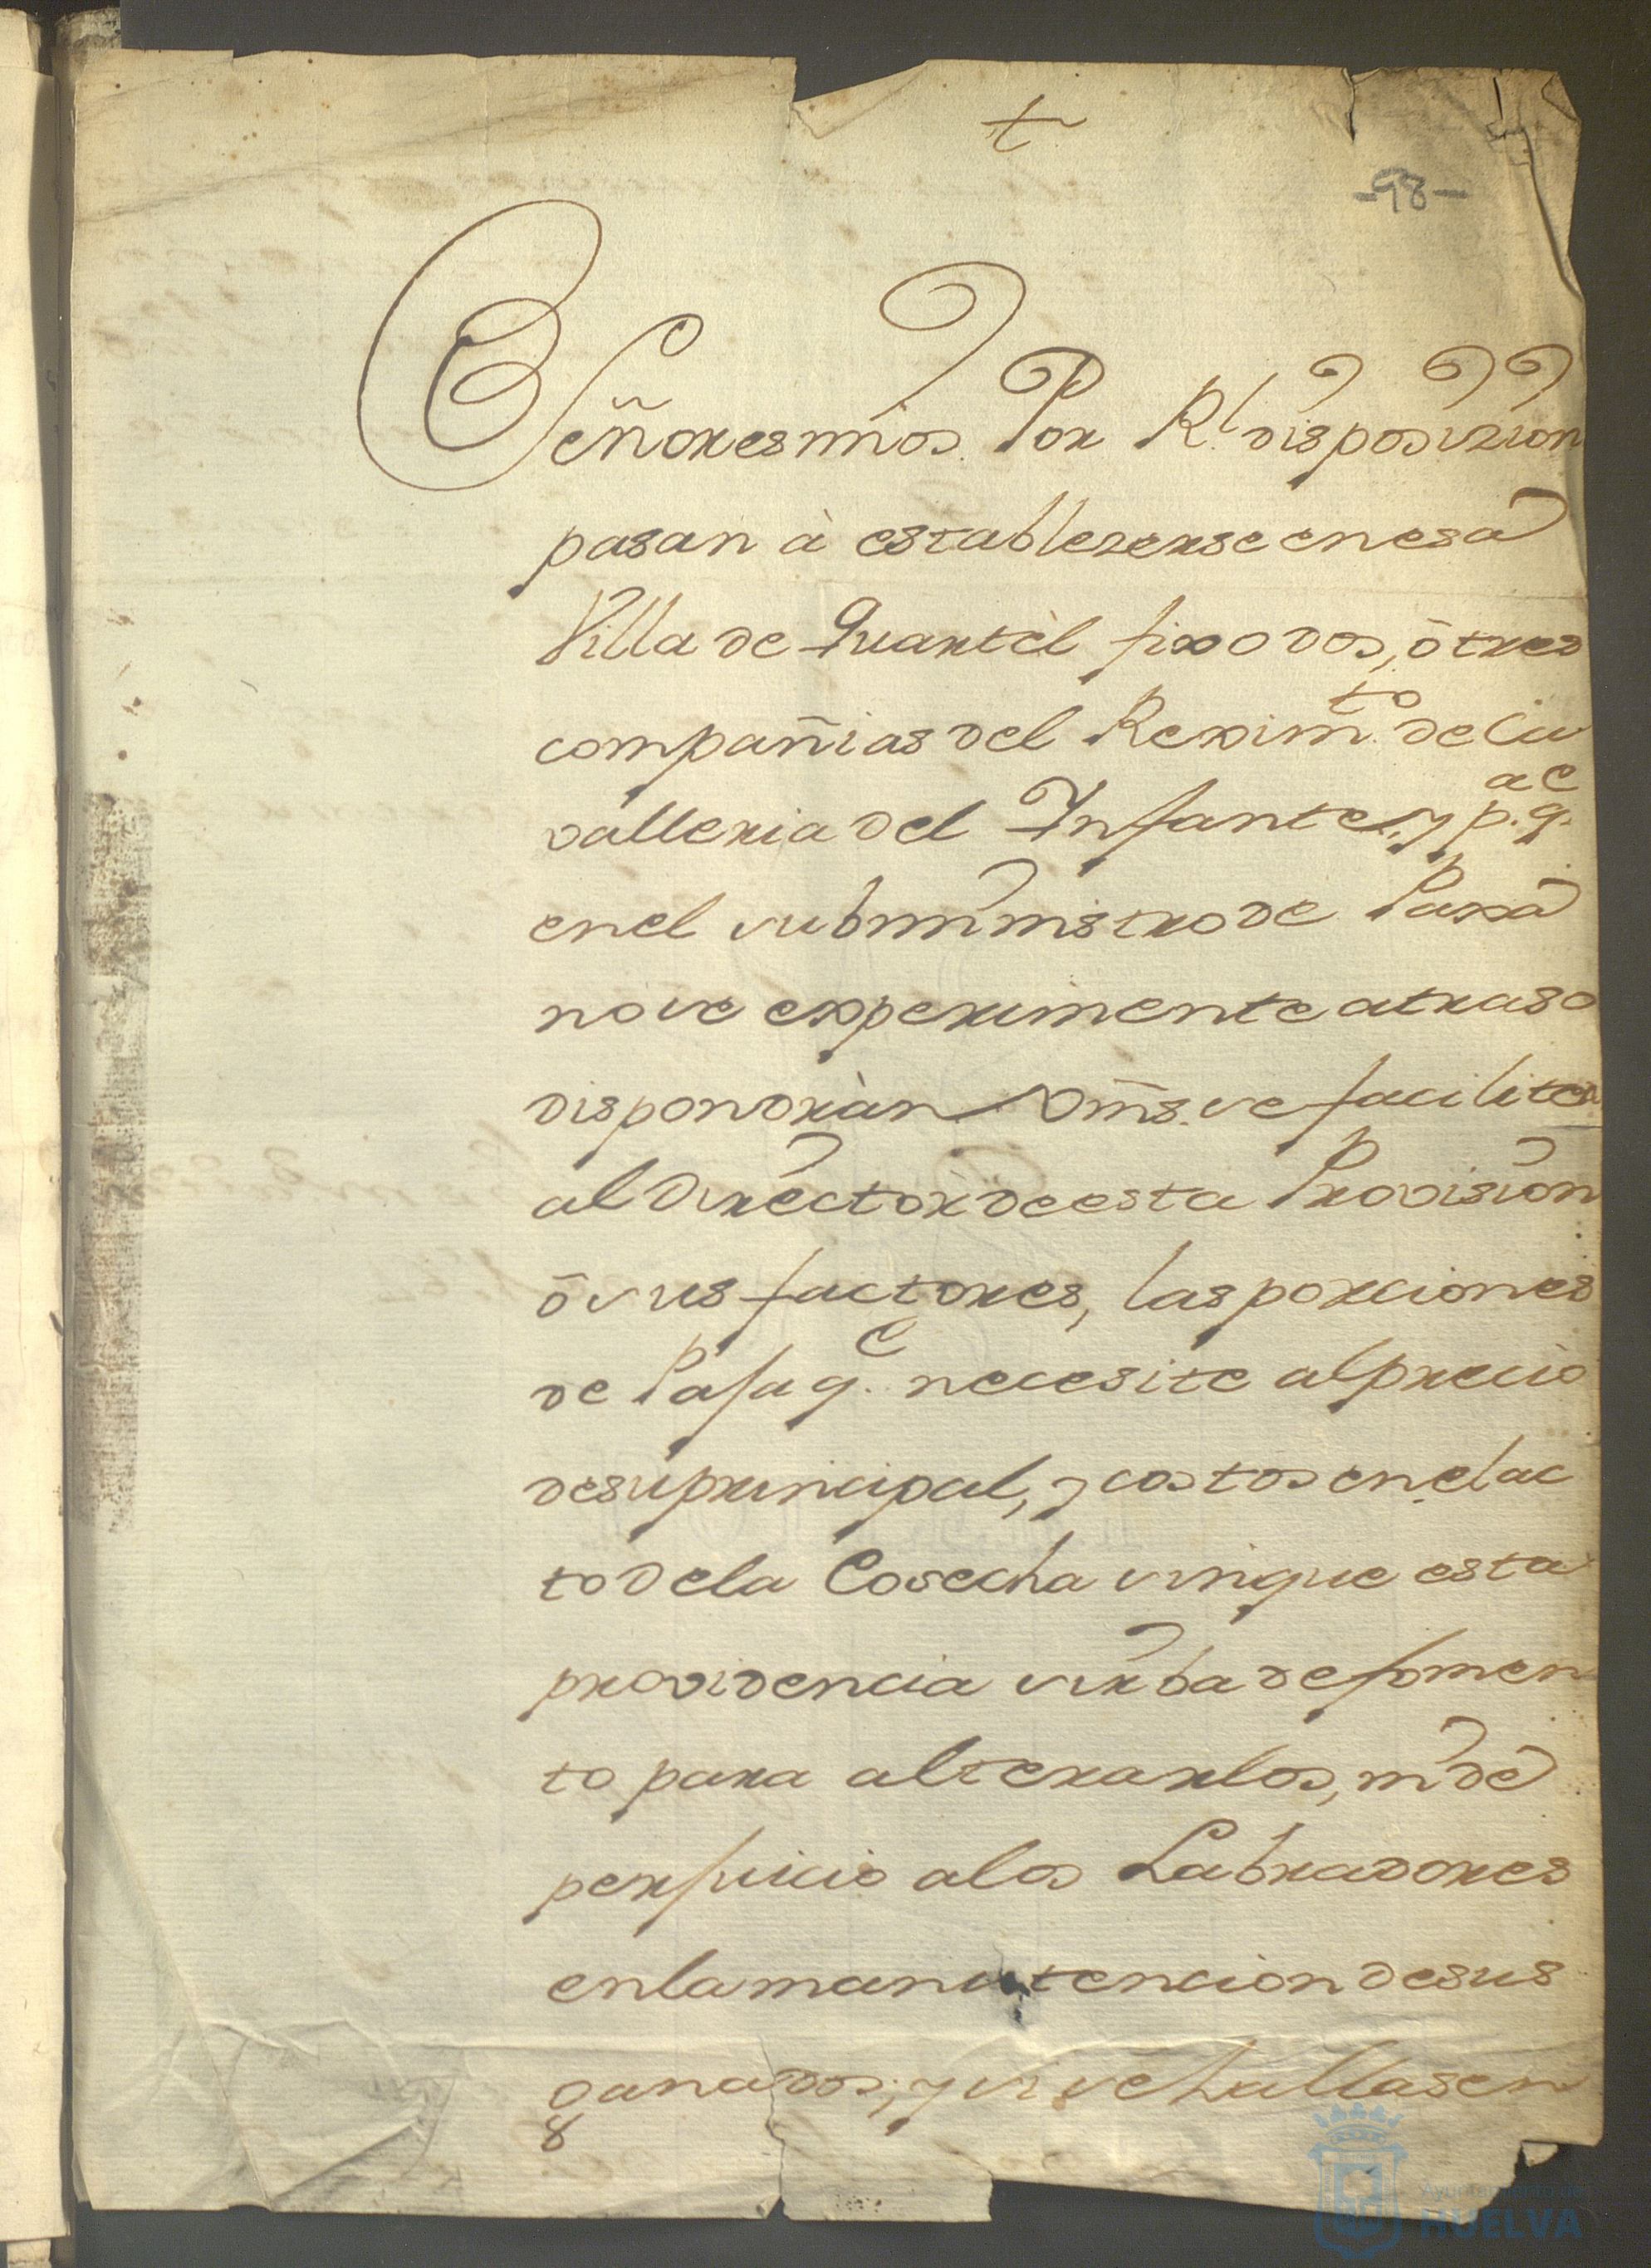 t
-98-
Señores mios. Por Rl. disposizion
pasan à establezerse en esa
Villa de Quartèl fixo dos, ò tres
compañias del Reximto. de Ca
valleria del Infante; y pa. qe.
en el subministro de Paxa
no se experimente atraso
dispondràn Vms. se facilite
al Director de esta Provision
ò sus factores, las porciones
de Paja qe. necesite al precio
de su principal, y costos en el ac
to de la Cosecha sin que esta
providencia sirba de fomen
to para alterarlos, ni de
perjuicio a los Labradores
en la manutencion de sus
ganados; y si se hallasen
Ayuntamiento de
HUELVA